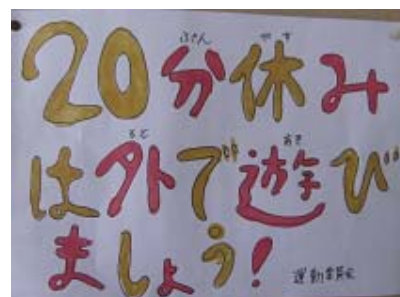 20分休み
は外で遊び
ましょう!
運動委員会